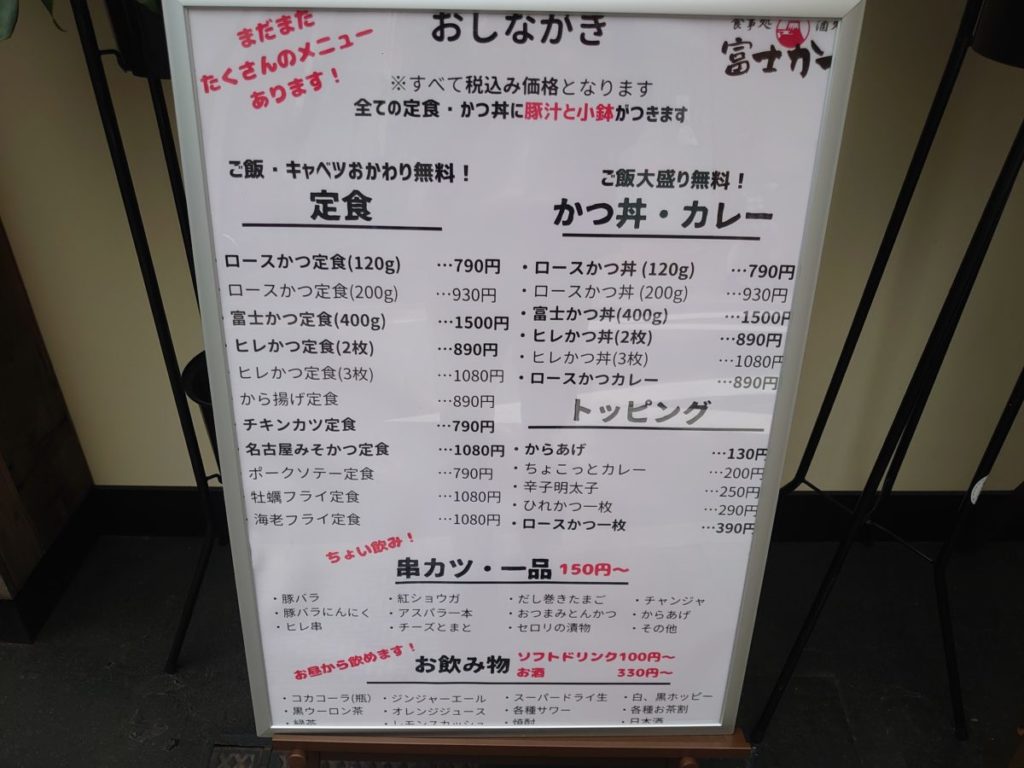 まだまだ
たくさんのメニュー
あります！
おしながき
食事処
富士か
※すべて税込み価格となります
全ての定食・かつ丼に豚汁と小鉢がつきます
ご飯・キャベツおかわり無料！
定食
ロースかつ定食(120g) …790円
ロースかつ定食(200g) …930円
・富士かつ定食(400g) …1500円
・ヒレかつ定食(2枚) …890円
・ヒレかつ定食(3枚) …1080円
・から揚げ定食 …890円
チキンカツ定食 …790円
・名古屋みそかつ定食 …1080円
・ポークソテー定食 …790円
・牡蠣フライ定食 …1080円
・海老フライ定食 …1080円
ご飯大盛り無料！
かつ丼・カレー
・ロースかつ丼 (120g) …790円
・ロースかつ丼 (200g) …930円
・富士かつ丼(400g) …1500円
・ヒレかつ丼(2枚) …890円
・ヒレかつ丼(3枚) …1080円
・ロースかつカレー …890円
トッピング
・からあげ …130円
・ちょこっとカレー …200円
・辛子明太子 …250円
・ひれかつ一枚 …290円
・ロースかつ一枚 …390円
ちょい飲み！
串カツ・一品 150円～
・豚バラ ・紅ショウガ ・だし巻きたまご ・チャンジャ
・豚バラにんにく ・アスパラ一本 ・おつまみとんかつ ・からあげ
・ヒレ串 ・チーズとまと ・セロリの漬物 ・その他
お昼から飲めます！
お飲み物
ソフトドリンク100円～
お酒 330円～
・コカコーラ(瓶) ・ジンジャーエール ・スーパードライ生 ・白、黒ホッピー
・黒ウーロン茶 ・オレンジジュース ・各種サワー ・各種お茶割
・緑茶 ・レモンスカッシュ ・焼酎 ・日本酒